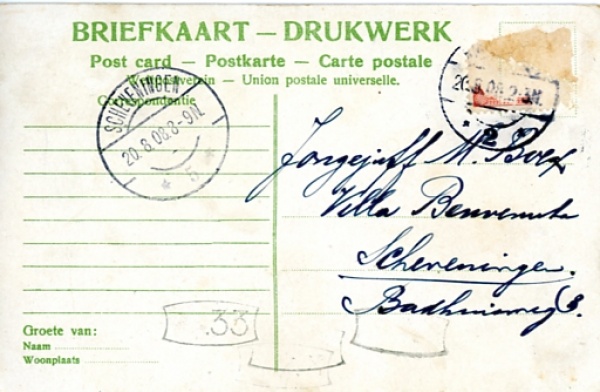 BRIEFKAART — DRUKWERK
Post card — Postkarte — Carte postale
Weltpostverein — Union postale universelle.
Correspondentie
SCHEVENINGEN
20.8.08.8-9N.
5
20.8.08.2-3N.
2
Jongejuff M.
Villa Benvenuta
Scheveningen.
Badhuisweg
33
Groete van:
Naam
Woonplaats